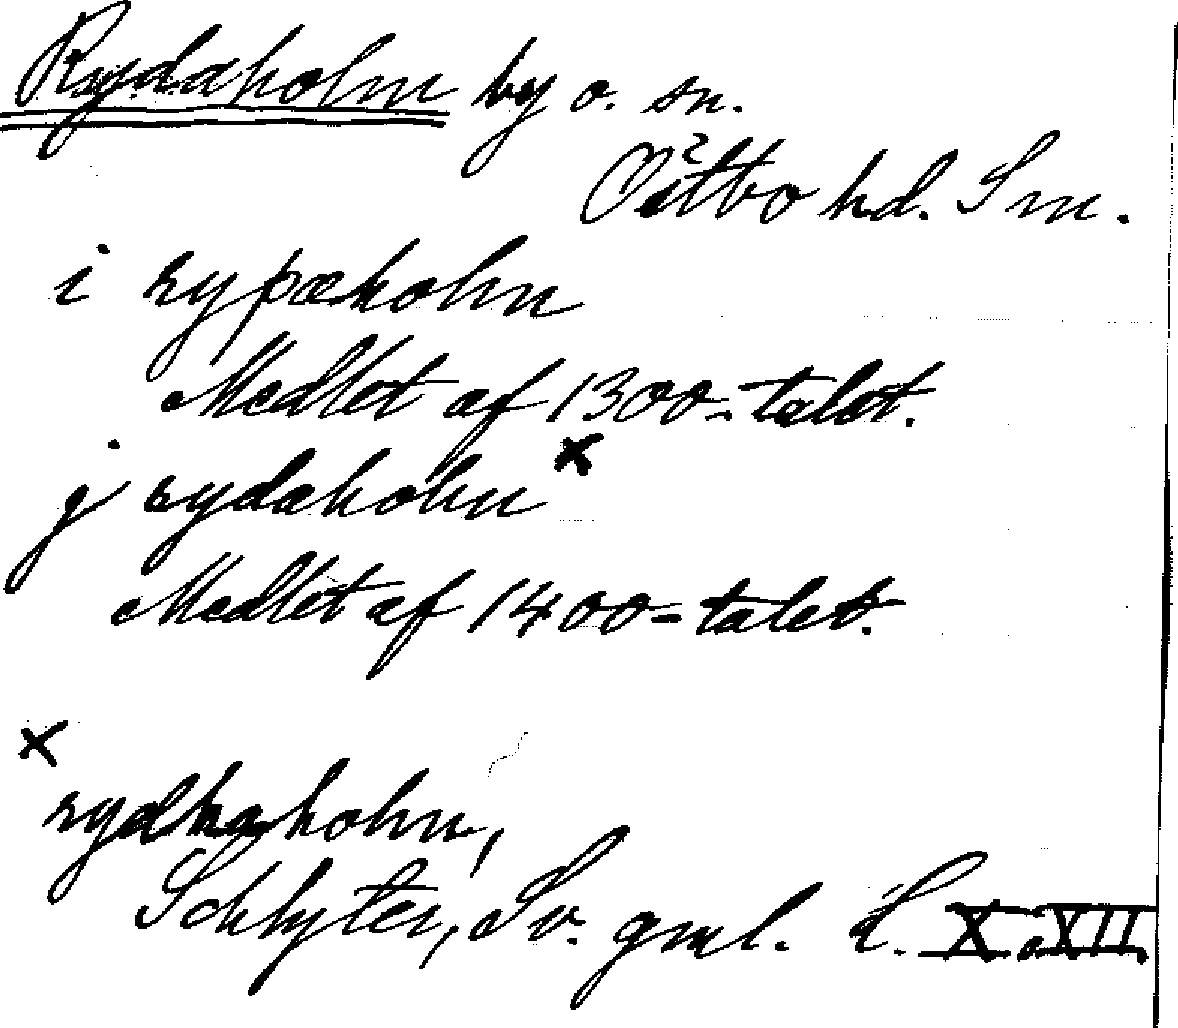 Rydaholm by o. sn.
Östbo hd. Sm.
i ryþæholm
Medlet af 1300-talet.
j rydæholm x
Medlet af 1400-talet.
x
rydhaholm,
Schlyter, Sv. gml. L. X o. XII.